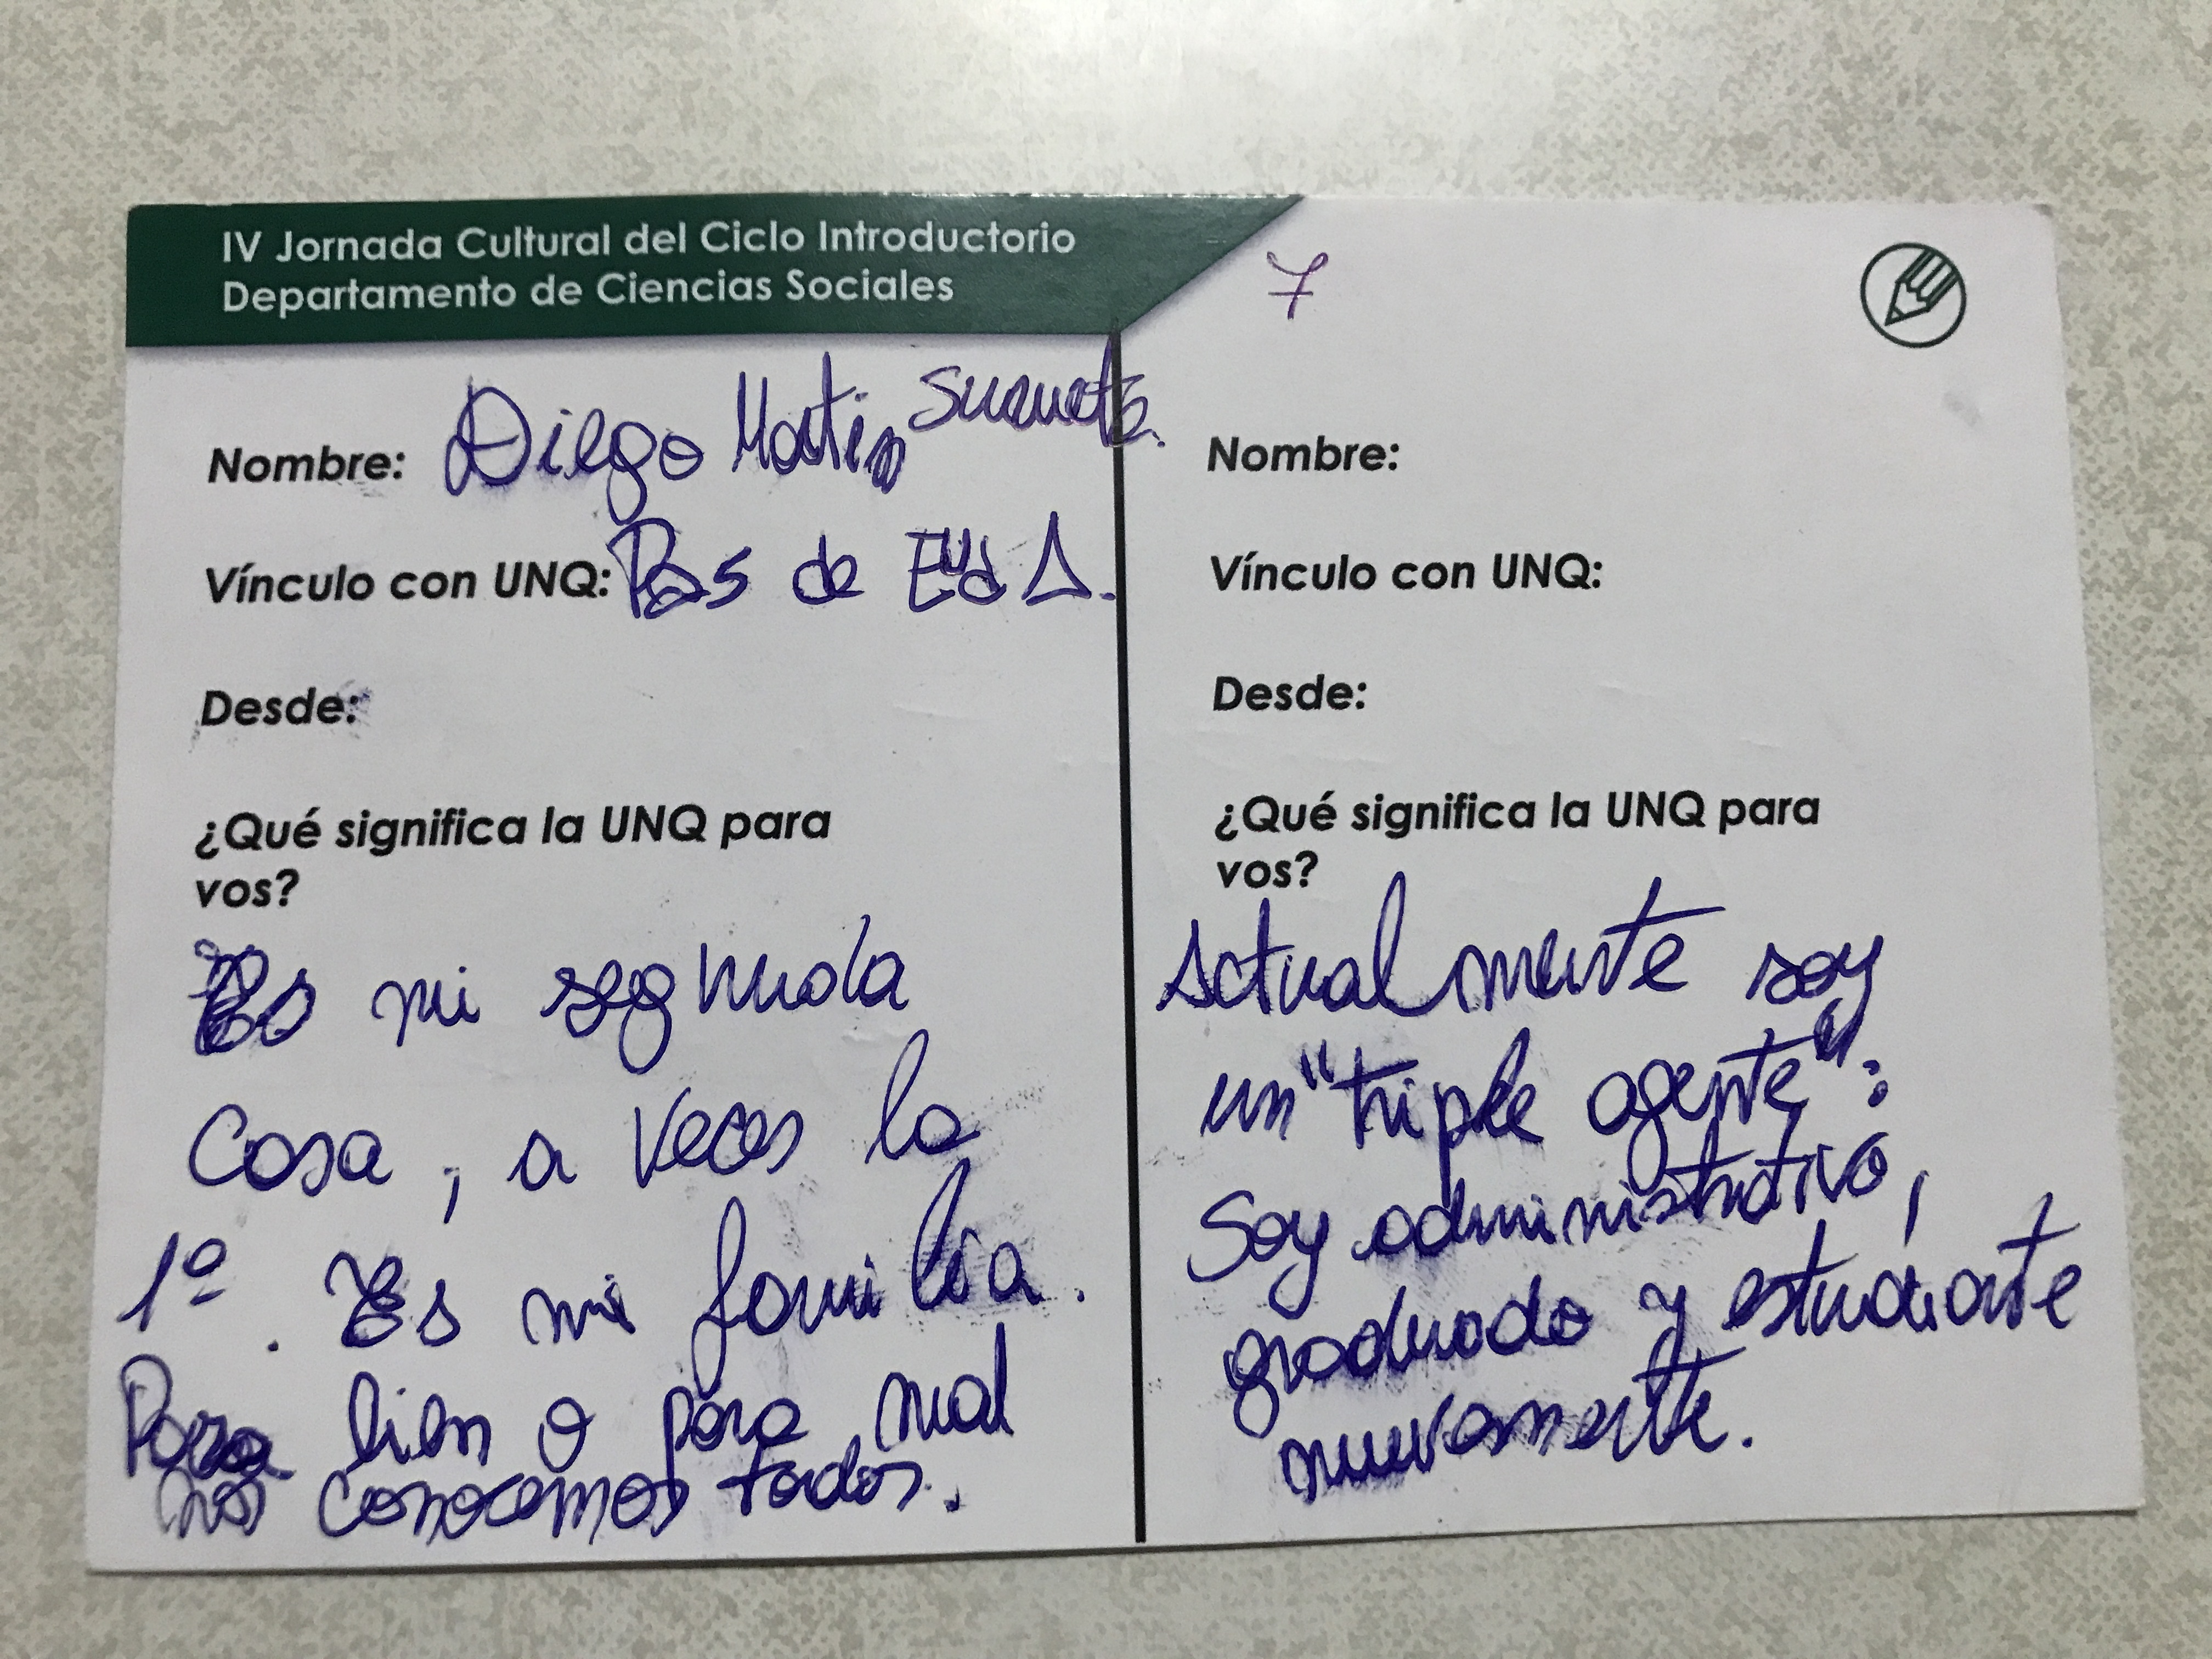 IV Jornada Cultural del Ciclo Introductorio
Departamento de Ciencias Sociales
7
Nombre: Diego Martin
Vínculo con UNQ: Pas de EUdA.
Desde:
¿Qué significa la UNQ para
vos?
Es mi segunda
Casa, a veces la
1º. Es mi familia.
Para bien o para mal
nos conocemos todos.
Nombre:
Vínculo con UNQ:
Desde:
¿Qué significa la UNQ para
vos?
Actualmente soy
un "triple agente":
Soy administrativo,
graduado y estudiante
nuevamente.